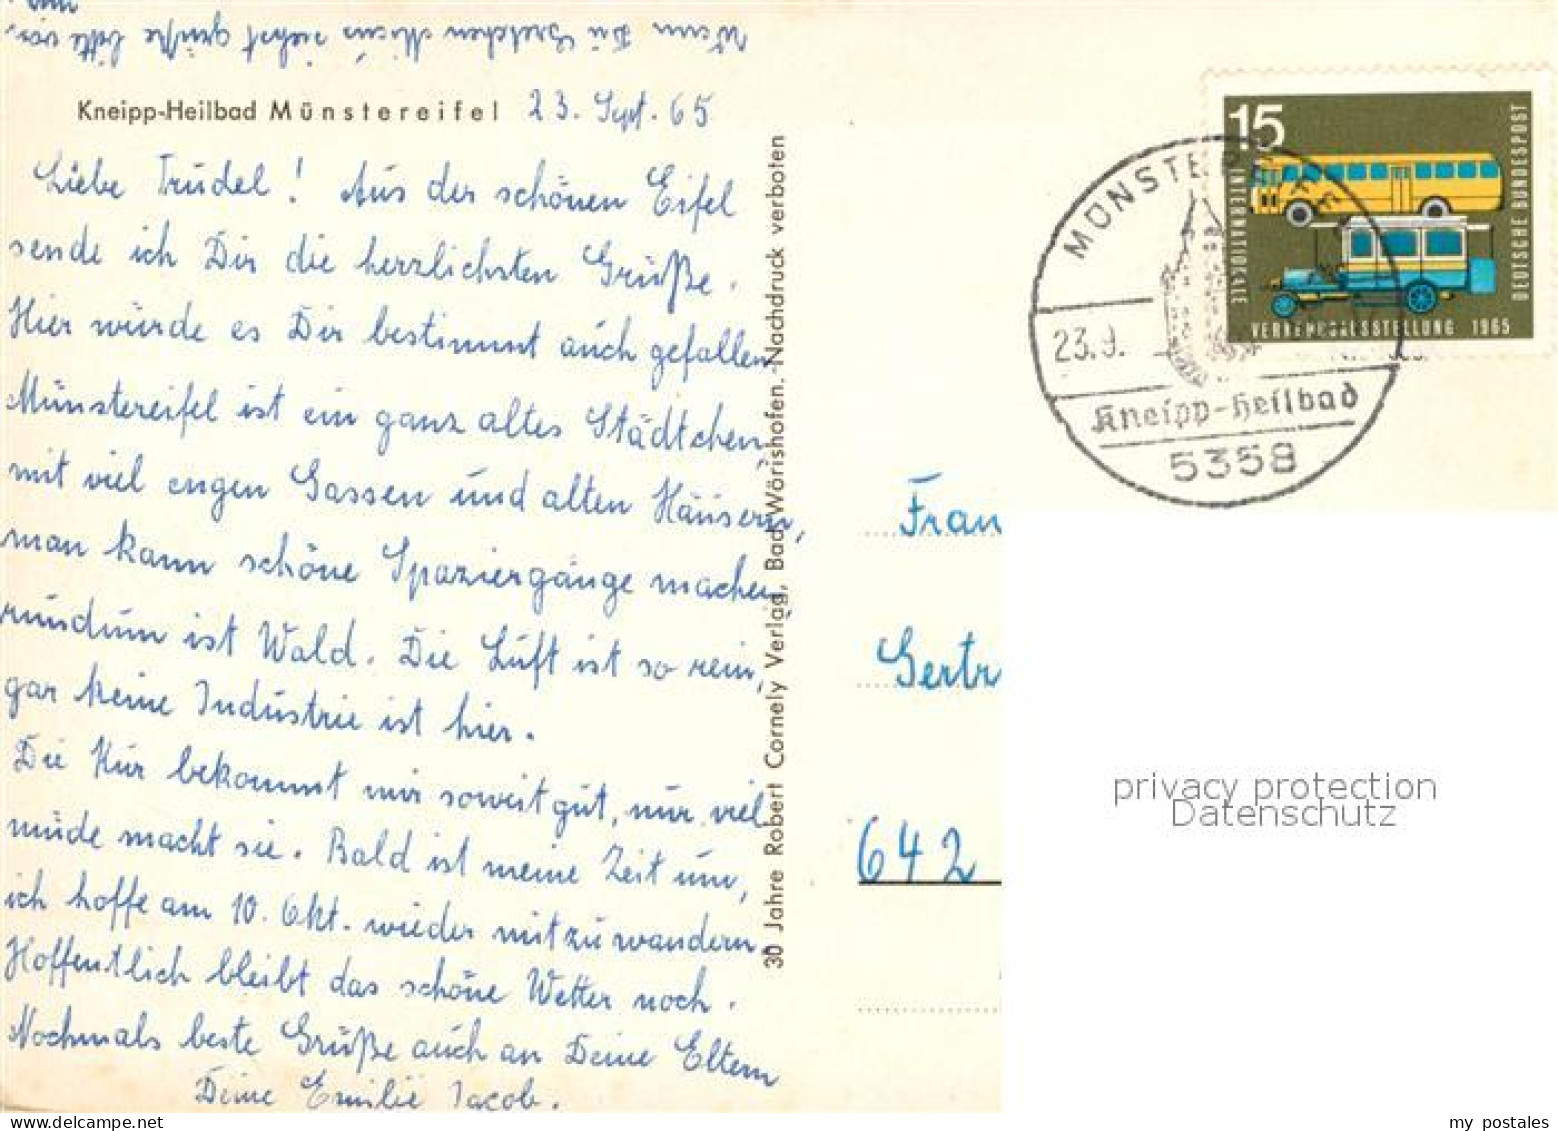 Wenn Du Gretchen Mieris siehst grüße bitte von
Kneipp-Heilbad Münstereifel 23. Sept. 65
Liebe Trudel! Aus der schönen Eifel
sende ich Dir die herzlichsten Grüße.
Hier würde es Dir bestimmt auch gefallen
Münstereifel ist ein ganz altes Städtchen
mit viel engen Gassen und alten Häusern,
man kann schöne Spaziergänge machen,
rundum ist Wald. Die Luft ist so rein,
gar keine Industrie ist hier.
Die Kur bekommt mir soweit gut, nur viel
müde macht sie. Bald ist meine Zeit um,
ich hoffe am 10. Okt. wieder mitzuwandern.
Hoffentlich bleibt das schöne Wetter noch.
Nochmals beste Grüße auch an Deine Eltern
Deine Emilie Jacob.
30 Jahre Robert Cornely Verlag, Bad Wörishofen. Nachdruck verboten
15
INTERNATIONALE
VERKEHRSAUSSTELLUNG 1965
DEUTSCHE BUNDESPOST
MÜNSTEREIFEL
23.9.
Kneipp-Heilbad
5358
Fran
Gertr
642
privacy protection
Datenschutz
my postales